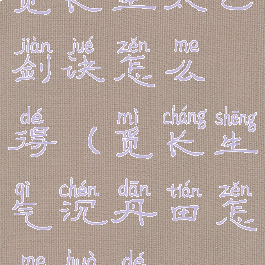 觅长生太乙
jiàn jué zěn me
剑诀怎么
dé mì cháng shēng
得（觅长生
qì chén dān tián zěn
气沉丹田怎
me huò dé